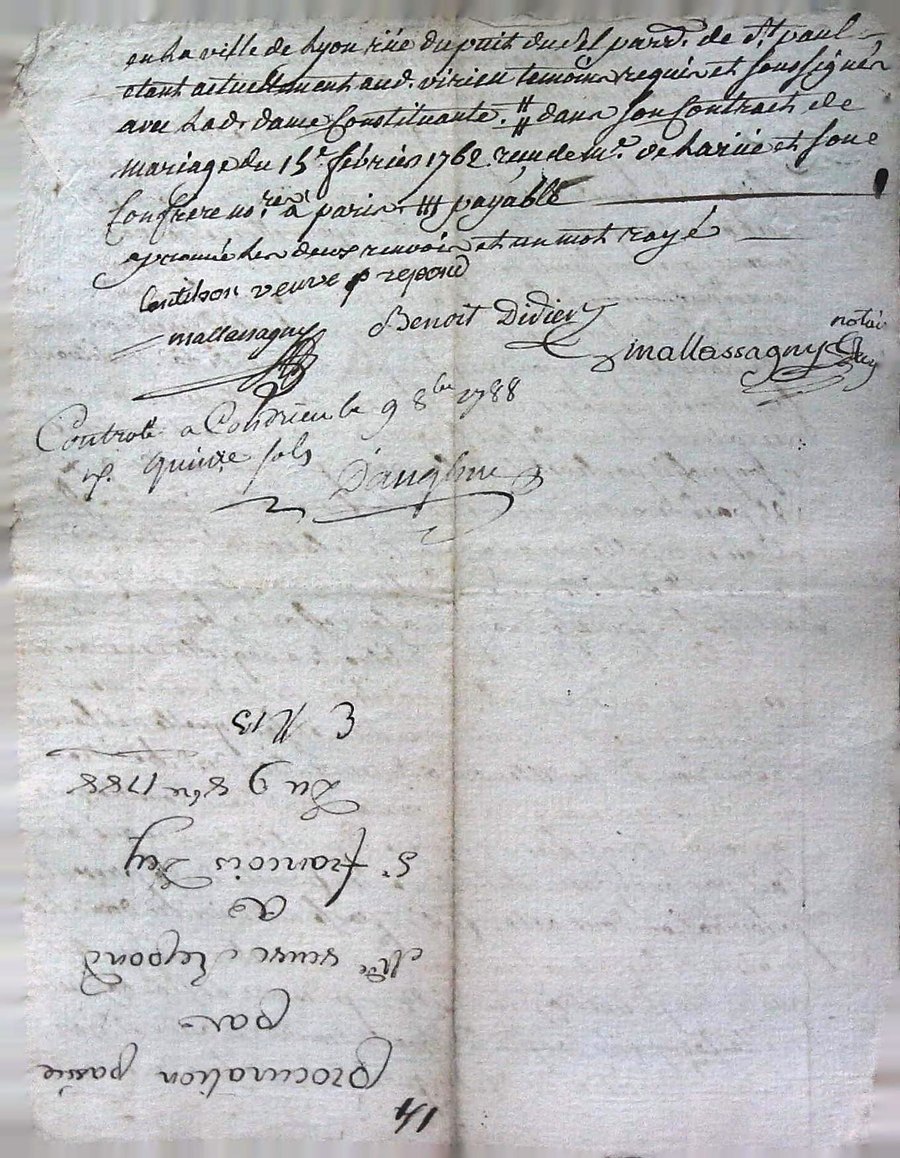 en la ville de Lyon rüe du puit du sel par.d. de S.t paul
etant actuellement aud. virieu temoins requis et soussignés
avec lad. dame Constituante. # dans son Contract de
mariage du 15.e février 1762 reçu de m.e de harüe et son
Confrere no.res à paris # payable
aprouvé les deux renvois et un mot rayé
Contilson veuve repond
mallassagny Benoit Didier
mallassagny notai
Controllé a Condrieu le 9 8bre 1788
R. quinze sols
Dangluu
procuration passée
par
Me veuve Repond
a
Sr francois Puy
Du 9 8bre 1788
E N 13
14